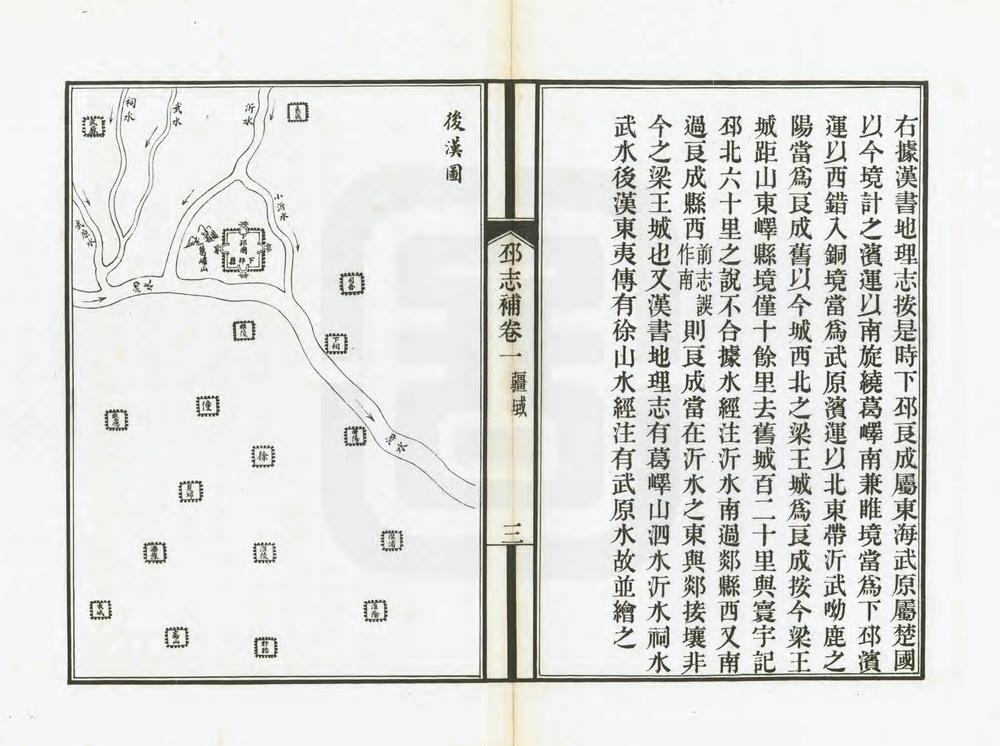 右據漢書地理志按是時下邳良成屬東海武原屬楚國
以今境計之濱運以南旋繞葛嶧南兼睢境當爲下邳濱
運以西錯入銅境當爲武原濱運以北東帶沂武呦鹿之
陽當爲良成舊以今城西北之梁王城爲良成按今梁王
城距山東嶧縣境僅十餘里去舊城百二十里與寰宇記
邳北六十里之說不合據水經注沂水南過郯縣西又南
過良成縣西前志誤作南則良成當在沂水之東與郯接壤非
今之梁王城也又漢書地理志有葛嶧山泗水沂水祠水
武水後漢東夷傳有徐山水經注有武原水故並繪之
邳志補卷一 疆域
三
後漢圖
沂水
武水
祠水
武原
武原水
小沂水
葛嶧山
下邳國
下邳縣
泗水
司吾
睢陵
下相
僮
取慮
徐
夏邱
泗水
淮浦
淮陵
潘旌
淮陰
東成
高山
盱眙